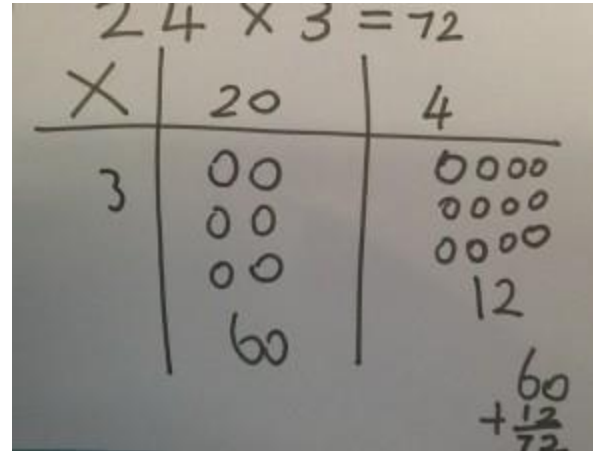 24 × 3 = 72
× 20 4
3
60
12
60
+ 12
72